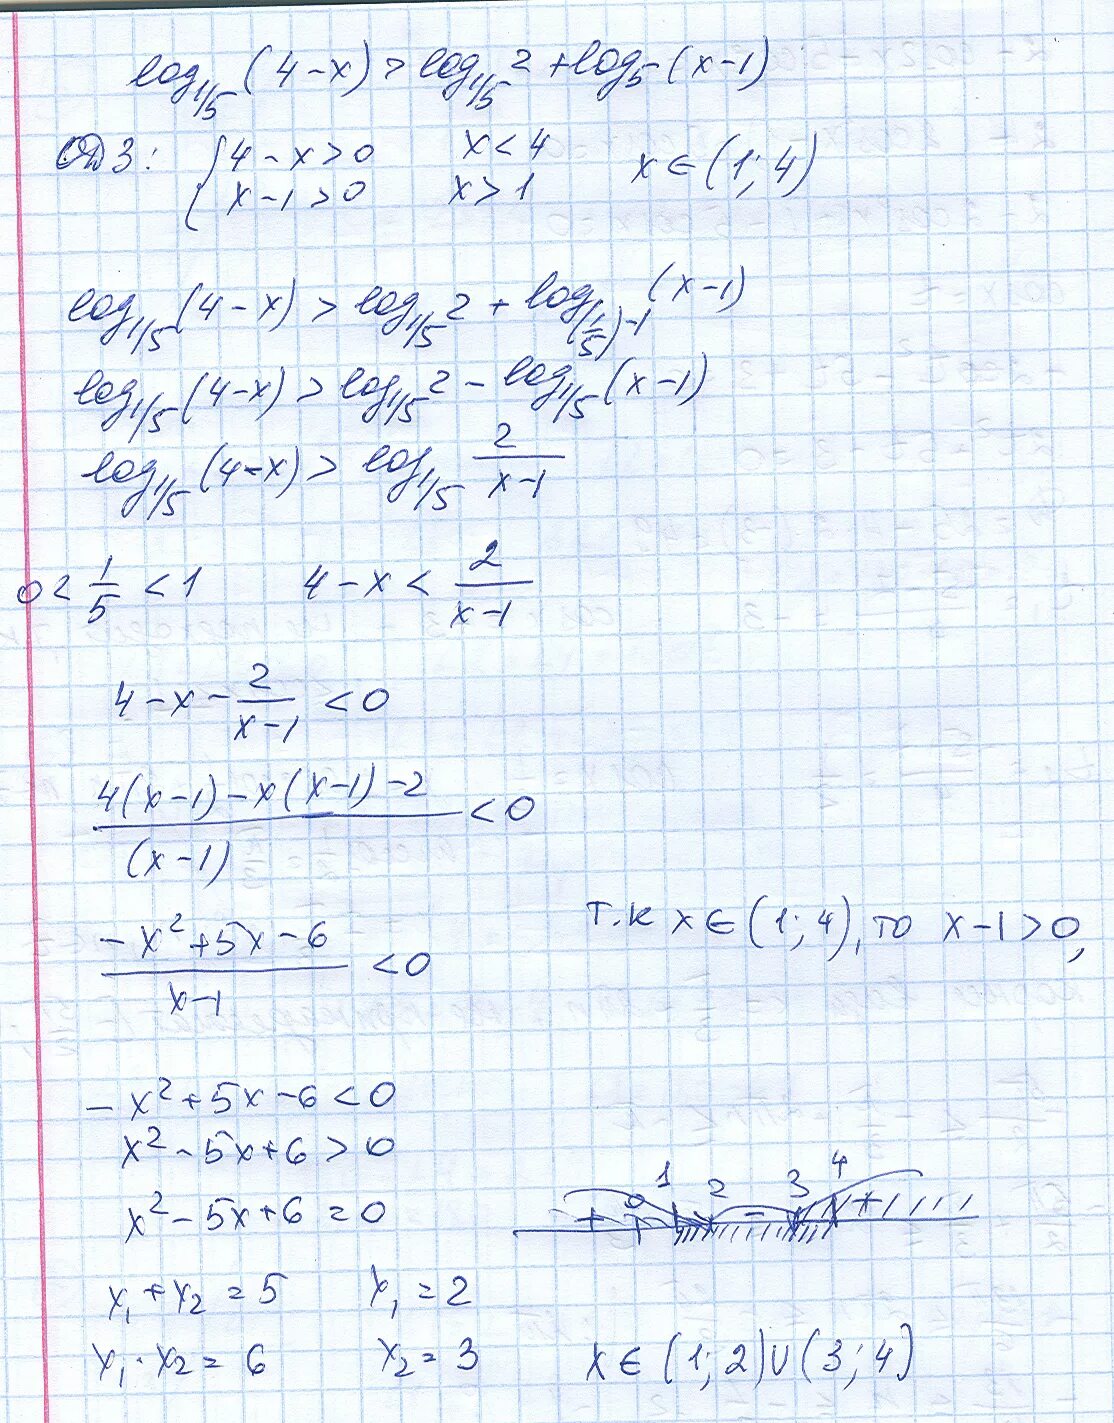 log₁/₅(4-x) > log₁/₅ 2 + log₅(x-1)
ОДЗ: { 4-x>0 x<4 x∈(1;4)
x-1>0 x>1
log₁/₅(4-x) > log₁/₅ 2 + log_(1/5)-1 (x-1)
log₁/₅(4-x) > log₁/₅ 2 - log₁/₅(x-1)
log₁/₅(4-x) > log₁/₅ 2/(x-1)
0 < 1/5 < 1 4-x < 2/(x-1)
4-x- 2/(x-1) < 0
4(x-1)-x(x-1)-2 / (x-1) < 0
-x²+5x-6 / x-1 < 0 т.к x∈(1;4), то x-1>0,
-x²+5x-6<0
x²-5x+6>0
x²-5x+6=0
0 1 2 3 4
+ - +
x₁+x₂=5 x₁=2
x₁·x₂=6 x₂=3 x∈(1;2)∪(3;4)